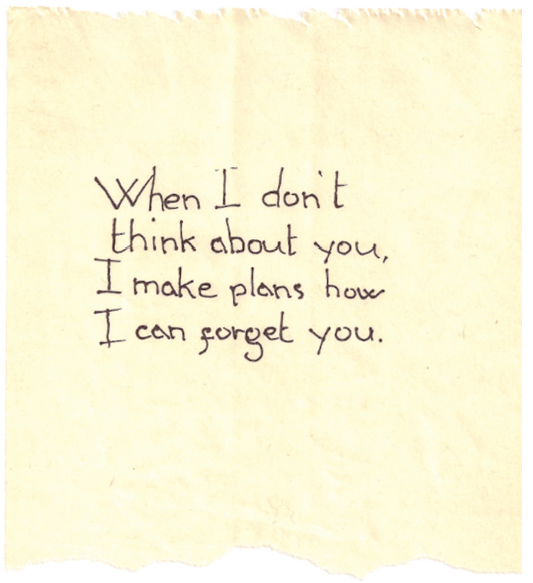 When I don't
think about you,
I make plans how
I can forget you.